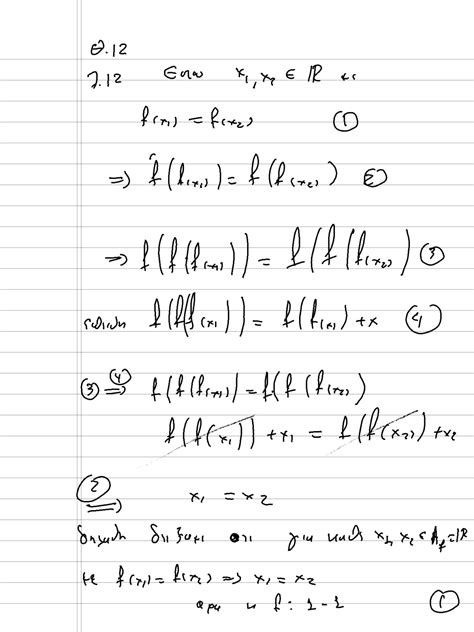 Θ.12
7.12 Εστω x₁, x₂ ∈ ℝ με
f(x₁) = f(x₂) ①
⇒ f(f(x₁)) = f(f(x₂)) ②
⇒ f(f(f(x₁))) = f(f(f(x₂)) ③
f(f(f(x₁))) = f(f(x₁) + x ④
③ ④⇒ f(f(f(x₁)) = f(f(f(x₂))
f(f(x₁)) + x₁ = f(f(x₂)) + x₂
②⇒ x₁ = x₂
δηλαδη δειξαμε οτι για καθε x₁, x₂ ∈ A_f = ℝ
με f(x₁) = f(x₂) ⇒ x₁ = x₂
αρα η f: 1-1 ①